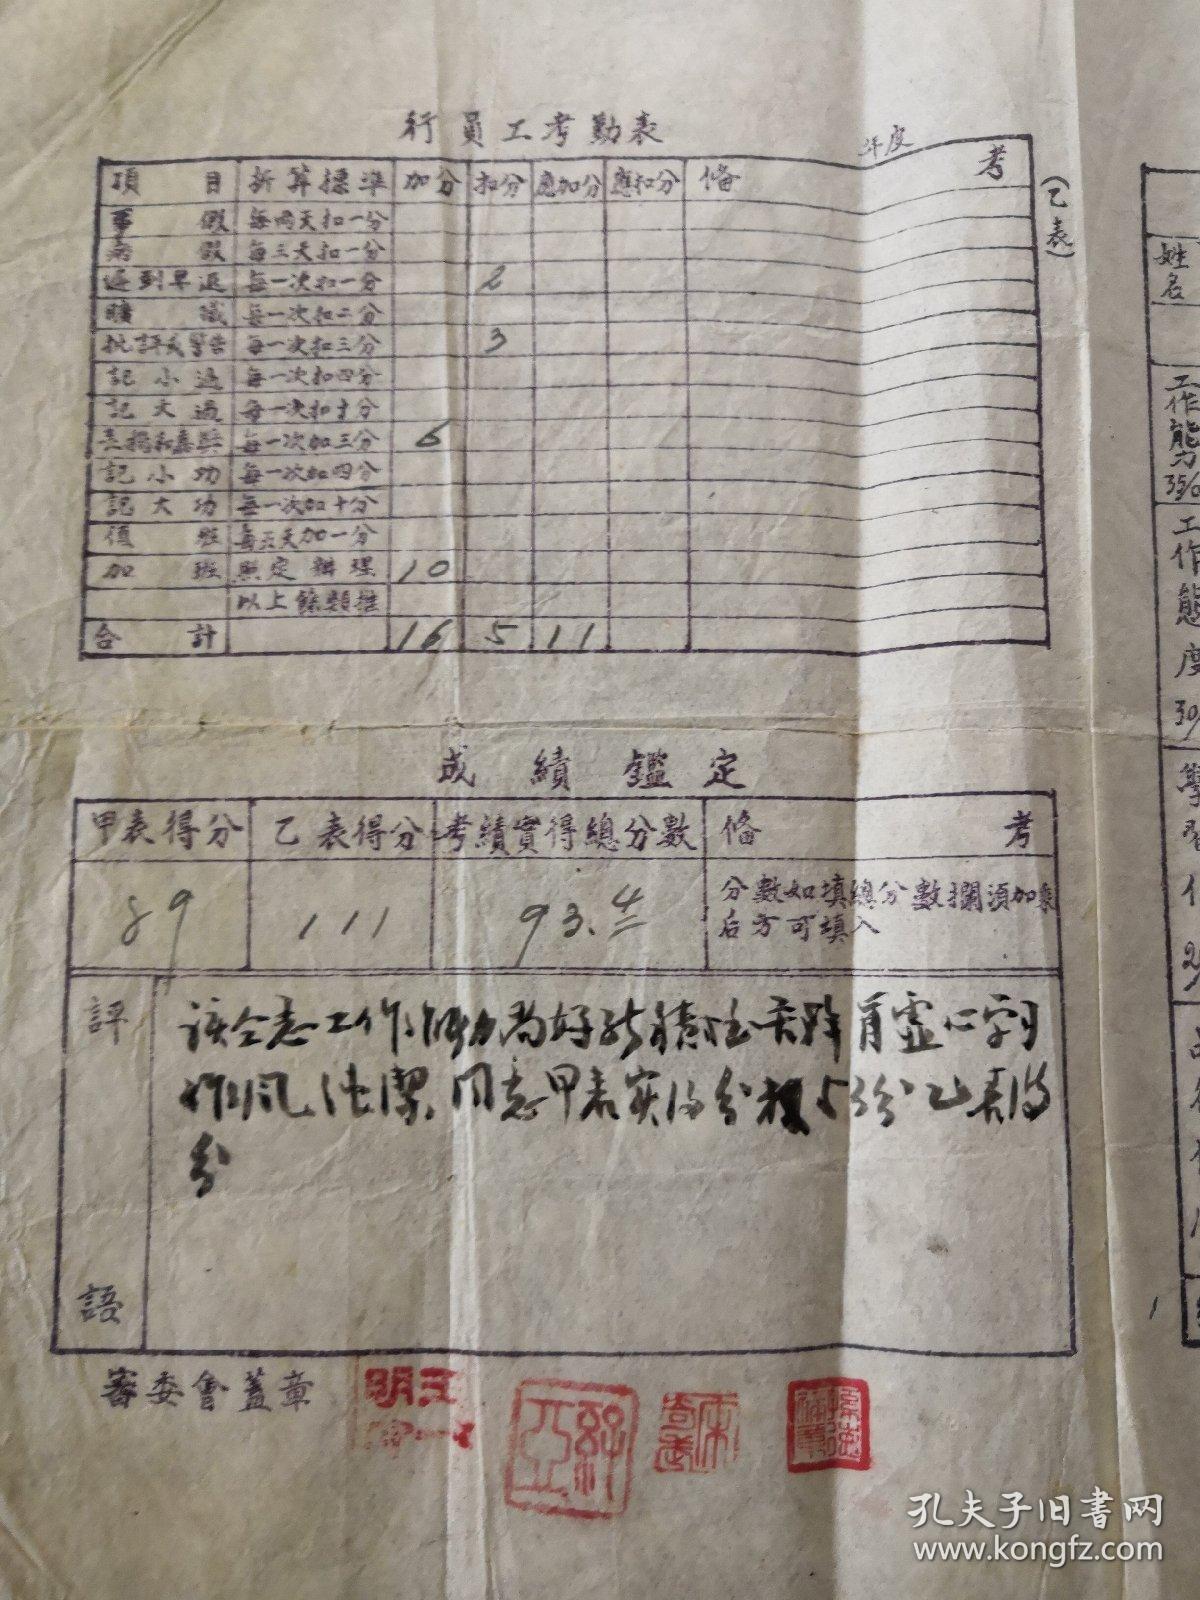 行員工考勤表
年度
(乙表)
項目 折算標準 加分 扣分 應加分 應扣分 俻考
事假 每兩天扣一分
病假 每三天扣一分
遲到早退 每一次扣一分 2
曠職 每一次扣二分
批評或警告 每一次扣三分 3
記小過 每一次扣四分
記大過 每一次扣十分
每一次加三分 6
記小功 每一次加四分
記大功 每一次加十分
值班 每五天加一分
加班 照定辦理 10
以上餘類推
合計 16 5 11
成績鑑定
甲表得分 乙表得分 考績實得總分數 俻考
89 111 93.4 分數如填總分數攔須加製
后方可填入
評語
該仝志工作 尚好 虛心学习
作风 同志甲表实得分 乙表得
分
審委會蓋章
姓名
工作能力
35%
工作態度
30
學習
孔夫子旧书网
www.kongfz.com